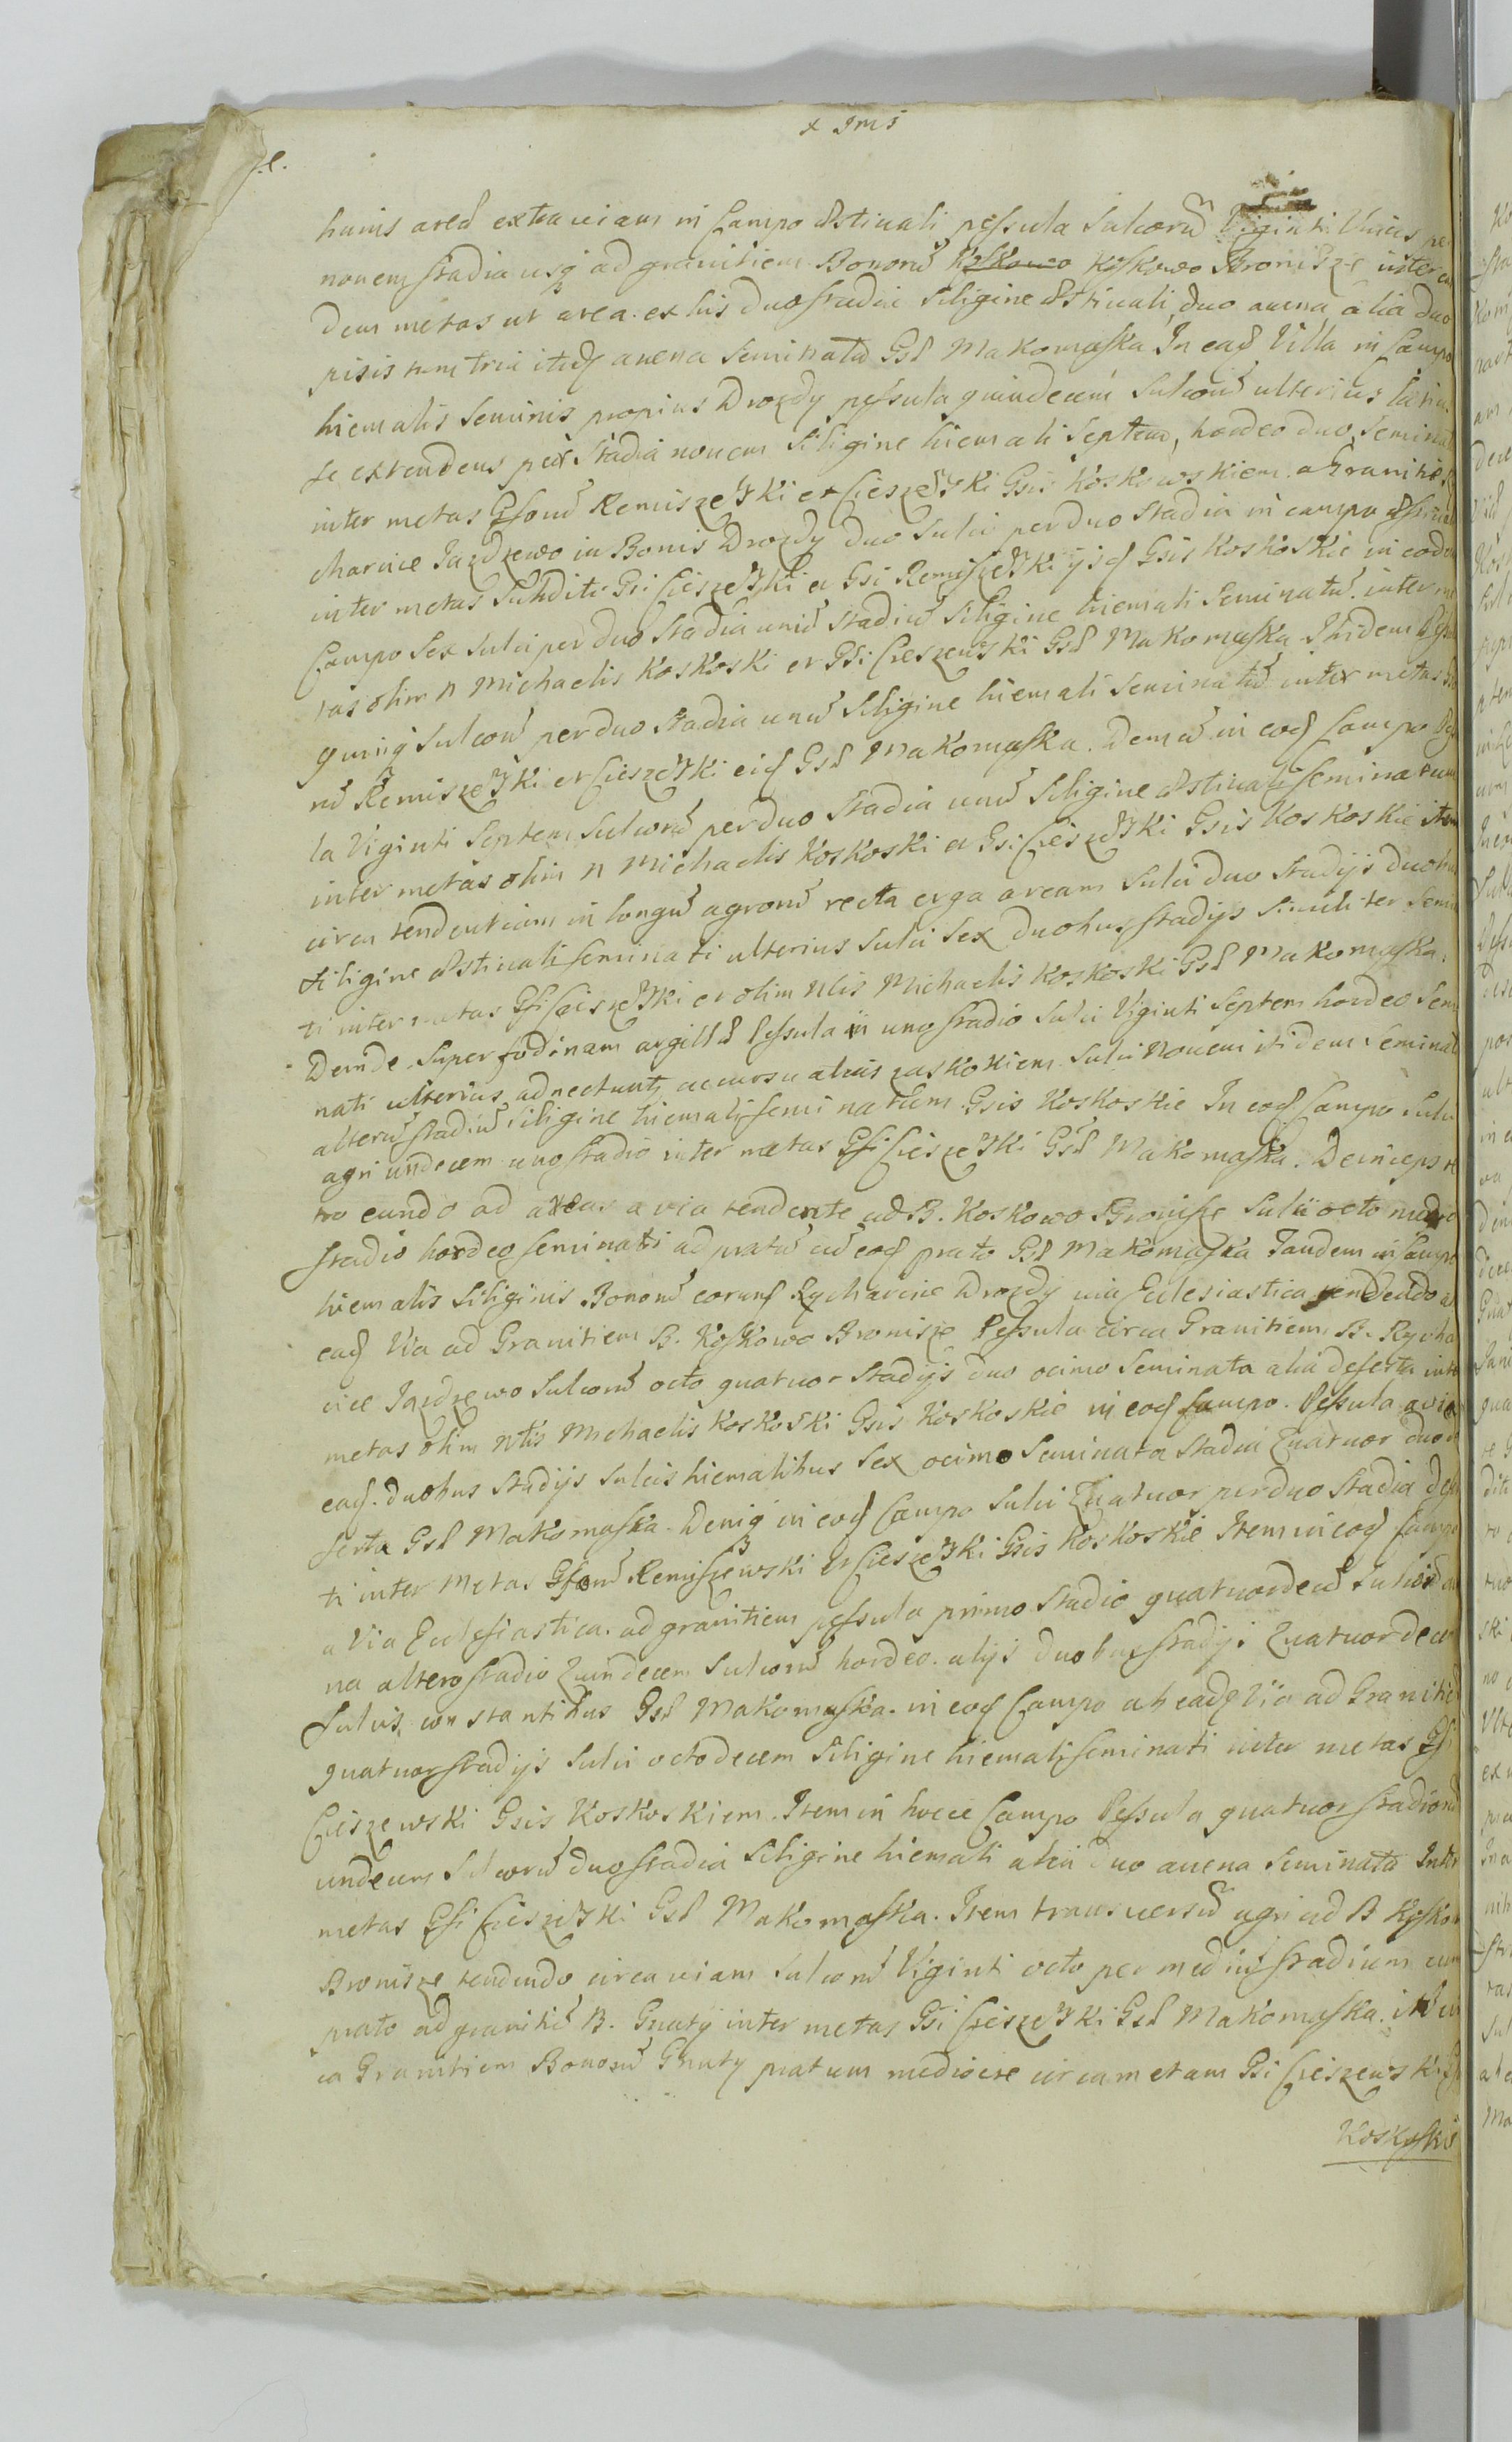 x Imi
huius areæ extra viam in Campo æstivali pessula sulcorũ Viginti Unius per
novem stadia usq̃ ad granitiem Bonorũ Koskowo Koskowo Bronisze inter
dem metas ut area. ex his duo stadia siligine æstivali, duo avena alia duo
pisis tum tria itiđ avena seminata Gsæ Makomaska In eađ Villa in Campo
hiemalis seminis propius Drozdy pessula quindecim sulcorũ ulterius latius
se extendens per stadia novem siligine hiemali septem, hordeo duo, seminat
inter metas Gsorũ Remiszewski et Cieszewski Gsis Koskowskiem. a Granitie
charcice Jazdzewo in Bonis Drozdy duo sulci per duo stadia in campo æstival
inter metas subditi Gsi Cieszewski et Gsi Remiszewski ijsđ Gsis Koskoskie in eode
Campo sex sulci per duo stadia unũ stadiũ siligine hiemali seminatũ. inter me
tas olim N Michaelis Koskoski et Gsi Cieszewski Gsæ Makomaska Ibidem
quinq̃ sulcorũ per duo stadia unũ siligine hiemali seminatũ inter metas
rũ Remiszewski et Cieszewski eiđ Gsæ Makomaska. Demũ in eođ Campo
la Viginti septem sulcorũ per duo stadia unũ siligine æstivali seminatum
inter metas olim N Michaelis Koskoski et Gsi Cieszewski Gsis Koskoskie item
circa tendentiam in longũ agrorũ recta erga aream sulci duo stadijs duobus
siligine æstivali seminati ulterius sulci sex duobus stadijs similiter semi
ti inter metas Gsi Cieszewski et olim Nlis Michaelis Koskoski Gsæ Makomaska.
Deinde super fodinam argillæ Pessula in uno stadio sulci Viginti septem hordeo semi
nati ulterius adnectunt accursu alias zaskokiem sulci novem itidem seminat
alterũ stadiũ siligine hiemali seminatum Gsis Koskoskie In eođ Campo sulci
agri undecem uno stadio inter metas Gsi Cieszewski Gsæ Makomaska. Deinceps re
tro eundo ad areas a via tendente ad B. Koskowo Bronisze sulci octo medio
stadio hordeo seminati ad pratũ cũ eođ prato Gsæ Makomaska Tandem in Campo
hiemalis siliginis Bonorũ eorunđ Rycharcice Drozdy via Ecclesiastica tendendo
eađ Via ad Granitiem B. Koskowo Bronisze Pessula circa Granitiem B. Rycha
cice Jazdzewo sulcorũ octo quatuor stadijs duo ocimo seminata alia deserta inter
metas olim Ntis Michaelis Koskoski Gsis Koskoskie in eođ Campo. Pessula a via
eađ. duobus stadijs sulcis hiemalibus sex ocimo seminata stadia quatuor duo de
serta Gsæ Makomaska. Deniq̃ in eođ Campo sulci Quatuor per duo stadia deser
ti inter Metas Gsorũ Remiszewski et Cieszewski Gsis Koskoskie Item in eođ Campo
a Via Ecclesiastica. ad granitiem pessula primo stadio quatuordecũ
na altero stadio Quindecem sulcorũ hordeo. alijs duobus stadijs Quatuordecem
sulcis, constantibus Gsæ Makomaska. in eođ Campo ab eadẽ Via ad Granitiẽ
quatuor stadijs sulci octodecem siligine hiemali seminati inter metas Gsi
Cieszewski Gsis Koskoskiem. Item in hocce Campo Pessula quatuor stadiorũ
undecem sulcorũ duo stadia siligine hiemali alia duo avena seminata Inter
metas Gsi Cieszewski Gsæ Makomaska. Item transversũ agri ad B Kosko
Bronisze tendendo circa viam sulcorũ Viginti octo per mediũ stadium cum
prato ad granitiẽ B. Gnaty inter metas Gsi Cieszewski Gsæ Makomaska. itẽ cir
ca Granitiem Bonorũ Gnaty pratum mediocre circa metam Gsi Cieszewski
Koskoskie